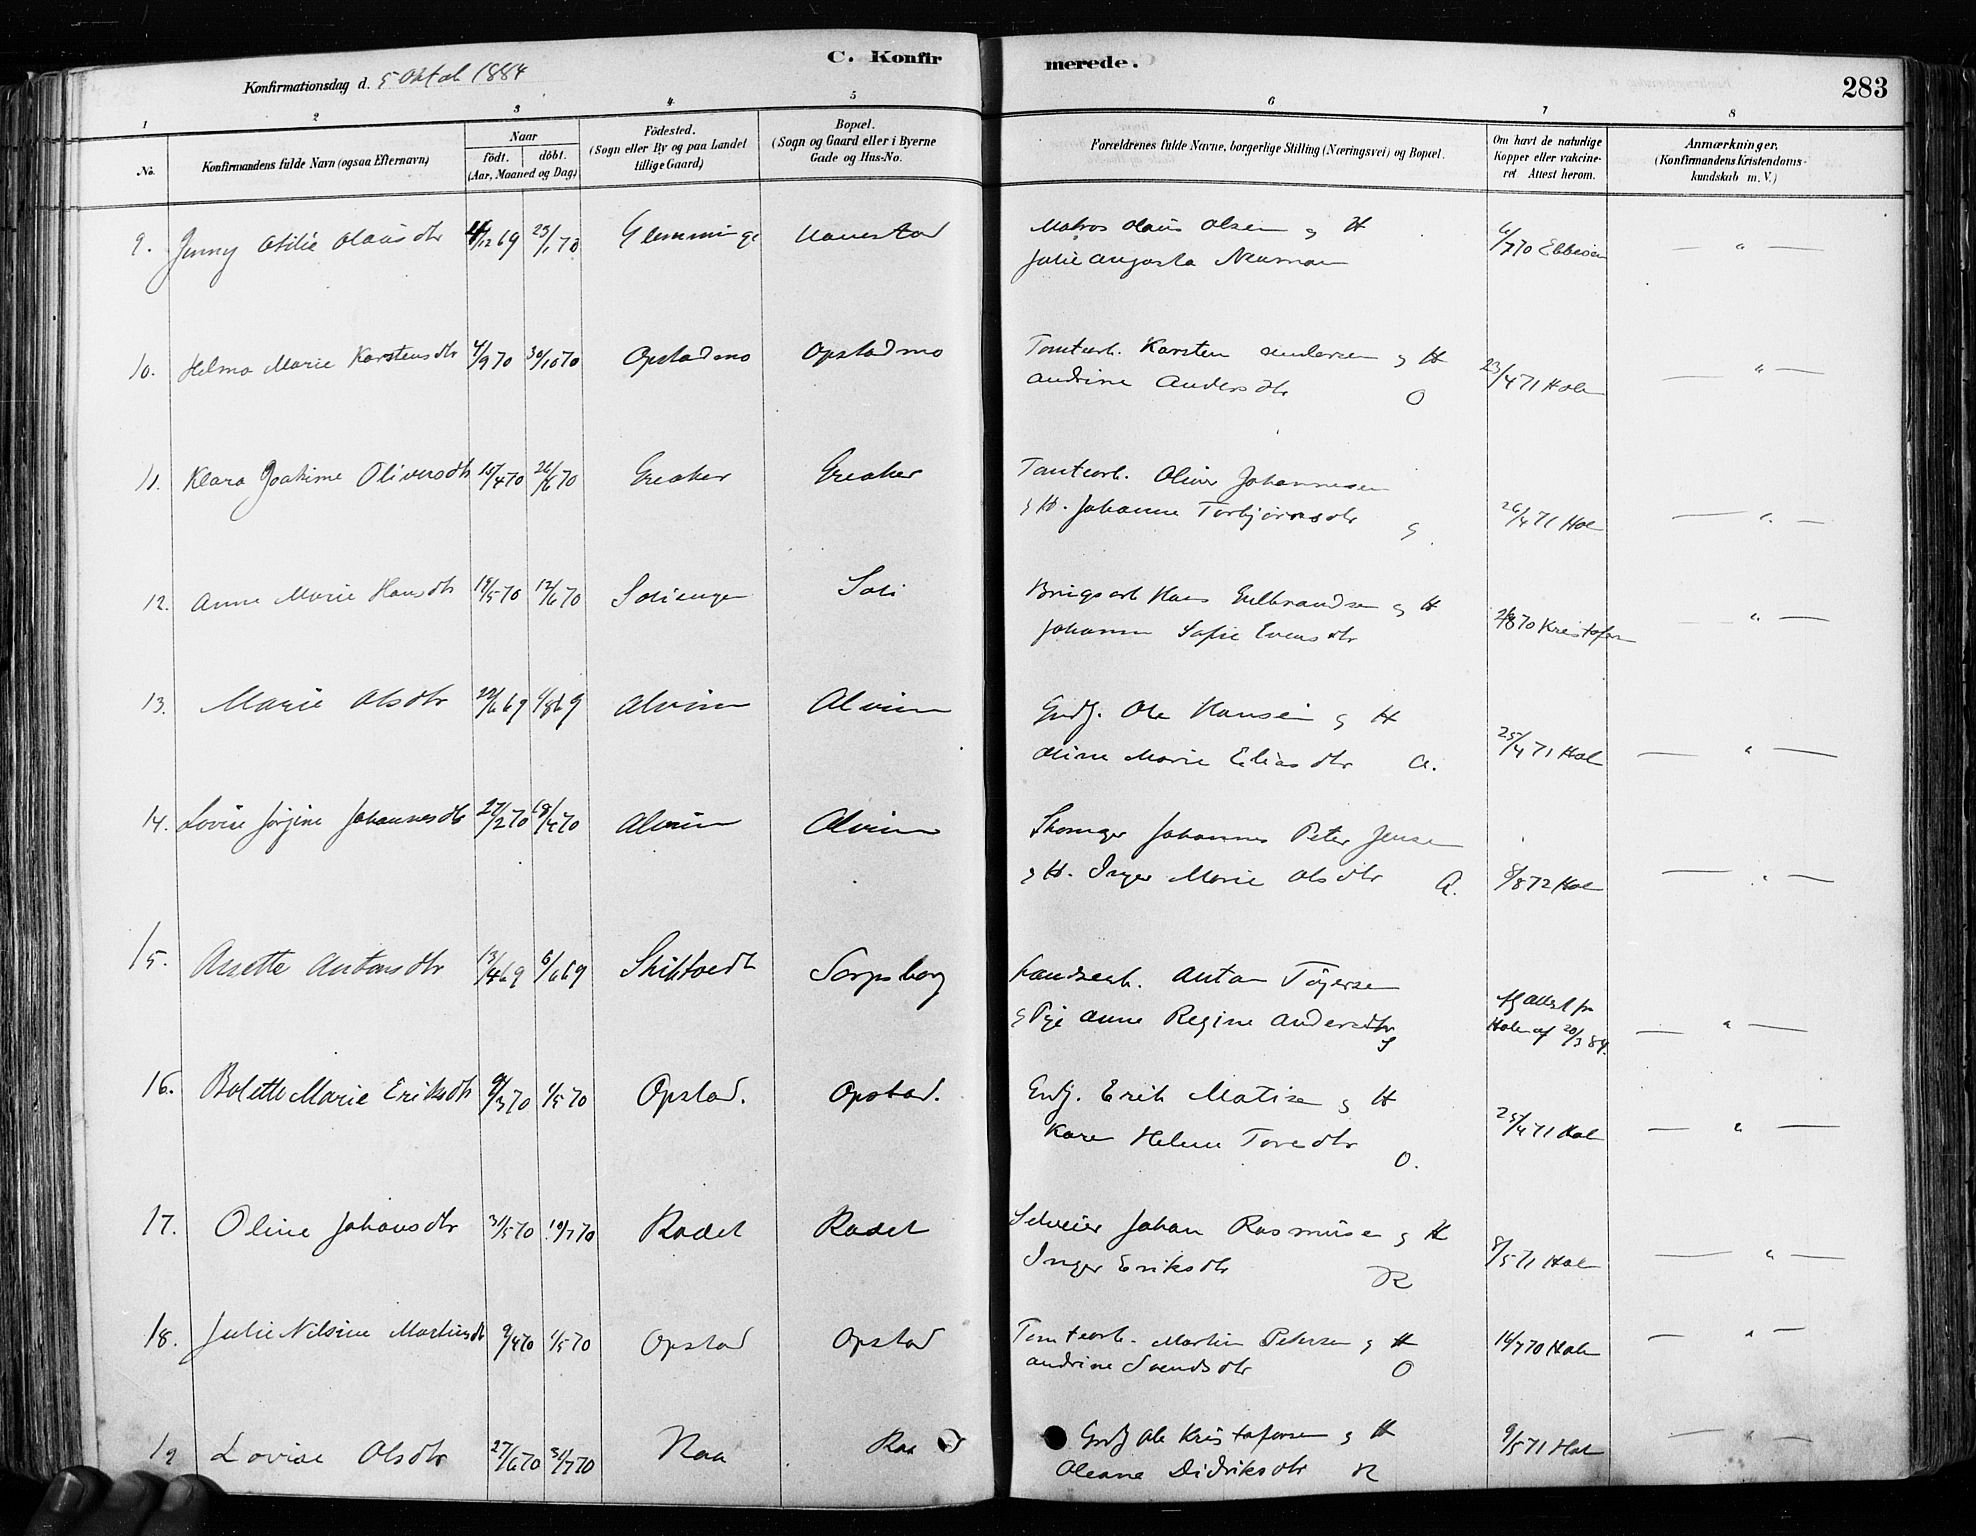 C. Konfirmerede.
283
Konfirmationsdag d. 5 Oktob 1884
1 2 3 4 5 6 7 8
No. Konfirmandens fulde Navn (ogsaa Efternavn) Naar födt. döbt. (Aar, Maaned og Dag) Födested. (Sogn eller By og paa Landet tillige Gaard) Bopæl. (Sogn og Gaard eller i Byerne Gade og Hus-No. Forældrenes fulde Navne, borgerlige Stilling (Næringsvei) og Bopæl. Om havt de naturlige Kopper eller vakcineret Attest herom. Anmærkninger. (Konfirmandens Kristendomskundskab m. V.)
9. Jenny Otilie Olausdtr /12 69 23/1 70 Glemminge Matros Olaus Olsen og H 6/7 70 Ebbesen — " —
Julie Augusta Neuman
10. Helma Marie Karstensdtr 4/9 70 30/10 70 Opstadmo Opstadmo Tomtearb. Karsten Andersen og H 23/4 71 Holm — " —
Andrine Andersdtr O
11. Klara Joakime Oliversdtr 15/4 70 26/6 70 Greaker Greaker Tomtearb. Oliver Johannesen
og H. Johanne Torbjörnsdtr G. 26/4 71 Holm — " —
12. Anne Marie Hansdtr 19/5 70 12/6 70 Solienger Soli Brugsarb Hans Gulbrandsen og H
Johanne Sofie Evensdtr /8 70 Kristofersen — " —
13. Marie Olsdtr 22/6 69 1/8 69 Alvim Alvim Grdj. Ole Hansen og H
Oline Marie Eliasdtr A. 25/4 71 Holm — " —
14. Lovise Jørgine Johannesdtr 27/2 70 18/4 70 Alvim Alvim Skomager Johannes Peter Jensen
og H. Inger Marie Olsdtr A. 8/8 72 Holm — " —
15. Anette Antonsdtr 13/4 69 6/6 69 Skiktvedt Sarpsborg Landsarb. Anton Töjersen
og Pige Anne Regine Andersdtr S Holm af 20/3 84. — " —
16. Bolette Marie Eriksdtr 9/3 70 1/5 70 Opstad. Opstad. Grdj. Erik Matisen og H
Karen Helene Toresdtr O. 25/4 71 Holm — " —
17. Oline Johansdtr 31/5 70 10/7 70 Rodet Rodet Selveier Johan Rasmusen og H
Inger Eriksdtr R 8/5 71 Holm — " —
18. Julie Nilsine Martinsdtr 9/4 70 1/5 70 Opstad Opstad Tomtearb. Martin Petersen og H 16/7 70 Holm — " —
Andrine Svendsdtr O
19 Lovise Olsdtr 27/6 70 31/7 70 Raa Raa Grdj Ole Kristofersen og H 9/5 71 Holm — " —
Oleane Didriksdtr R